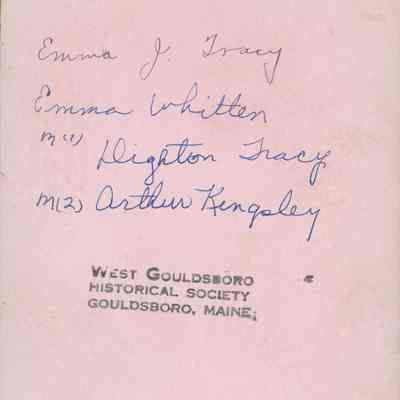 Emma J. Tracy
Emma Whitten
m(1)
Dighton Tracy
m(2) Arthur Kingsley
WEST GOULDSBORO
HISTORICAL SOCIETY
GOULDSBORO, MAINE